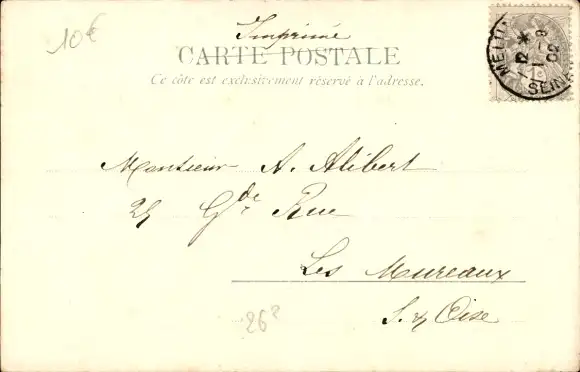 10€
Imprimé
CARTE POSTALE
Ce côte est exclusivement réservé à l'adresse.
MELUN
12 *
1 - 9
02
SEINE
Monsieur A. Alibert
25 Gde Rue
Les Mureaux
S. & Oise
26